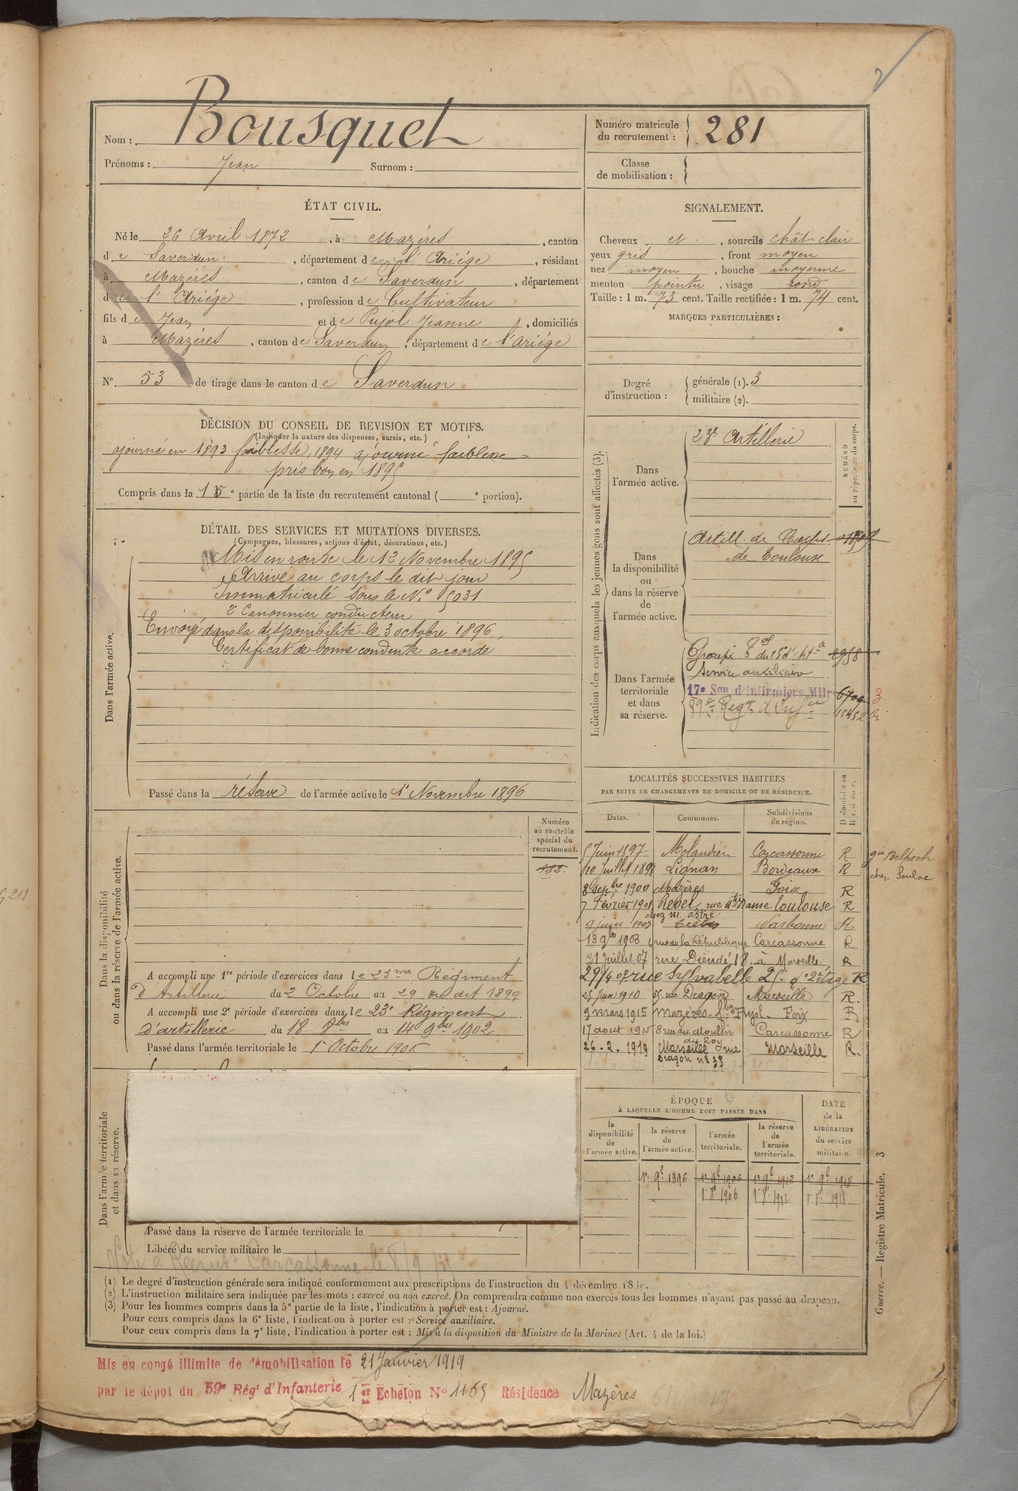 Nom : Bousquet
Prénoms : Jean Surnom :
Numéro matricule du recrutement : 281
Classe de mobilisation :
ÉTAT CIVIL.
Né le 26 Avril 1872, à Mazères, canton
de Saverdun, département de l'Ariège, résidant
à Mazères, canton de Saverdun, département
de l'Ariège, profession de Cultivateur
fils de Jean et de Pujol Jeanne, domiciliés
à Mazères, canton de Saverdun, département de l'Ariège
N° 53 de tirage dans le canton de Saverdun
SIGNALEMENT.
Cheveux et, sourcils chât clair
yeux gris, front moyen
nez moyen, bouche moyenne
menton pointu, visage rond
Taille : 1 m. 73 cent. Taille rectifiée : 1 m. 74 cent.
MARQUES PARTICULIÈRES :
Degré d'instruction : générale (1). 3
militaire (2).
DÉCISION DU CONSEIL DE REVISION ET MOTIFS.
(Indiquer la nature des dispenses, sursis, etc.)
ajourné en 1893 faiblesse, 1894 ajourné faiblesse
pris bon en 1895
Compris dans la 1e partie de la liste du recrutement cantonal ( e portion).
DÉTAIL DES SERVICES ET MUTATIONS DIVERSES.
(Campagnes, blessures, actions d'éclat, décorations, etc.)
Dans l'armée active.
Mis en route le 13 Novembre 1895
Arrivé au corps le dit jour
Immatriculé sous le N° 5031
2e Canonnier conducteur
Envoyé dans la disponibilité le 3 octobre 1896.
Certificat de bonne conduite accordé
Passé dans la réserve de l'armée active le 1er Novembre 1896
Indication des corps auxquels les jeunes gens sont affectés (3).
NUMÉRO au répertoire du corps.
Dans l'armée active.
23e Artillerie
Dans la disponibilité ou dans la réserve de l'armée active.
Artill. de Corps
de Toulouse
Dans l'armée territoriale et dans sa réserve.
Service auxiliaire
17e Son d'infirmiers Mil
59e Regt d'Infie
LOCALITÉS SUCCESSIVES HABITÉES
PAR SUITE DE CHANGEMENTS DE DOMICILE OU DE RÉSIDENCE.
Dates. Communes. Subdivisions de région. Domicile ou Résidence.
5 Juin 1897 Molandier Carcassonne R
10 Juillet 1898 Lignan Bordeaux R
8 Sepbre 1900 Mazères Foix R
7 Février 1901 Revel, rue Ntre Dame Toulouse R
9 juin 1903 Narbonne R
13 9bre 1903 rue de la République Carcassonne R
31 Juillet 07 rue Dieudé 18 à Marseille R
29/4 08 rue Sylvabelle 25 2e étage R
25 Juin 1910 35 rue Dragon Marseille R.
9 mars 1915 Mazères Foix R
17 août 1915 rue du Moulin Carcassonne R
26-2-1919 Marseille rue Marseille R.
Dragon n° 33
Numéro au contrôle spécial du recrutement.
Dans la disponibilité ou dans la réserve de l'armée active.
A accompli une 1re période d'exercices dans le 23me Régiment
d'Artillerie du 2 Octobre au 29 du dit 1899
A accompli une 2e période d'exercices dans le 23e Régiment
d'artillerie du 18 8bre au 14 9bre 1902
Passé dans l'armée territoriale le 1er Octobre 1906
Dans l'armée territoriale et dans sa réserve.
Passé dans la réserve de l'armée territoriale le
Libéré du service militaire le
ÉPOQUE
À LAQUELLE L'HOMME DOIT PASSER DANS
DATE de la LIBÉRATION du service militaire.
la disponibilité de l'armée active. la réserve de l'armée active. l'armée territoriale. la réserve de l'armée territoriale.
1er 9bre 1896 1er 9bre 1906 1er 9bre 1912 1er 9bre 1918
Guerre. — Registre Matricule. 3
(1) Le degré d'instruction générale sera indiqué conformément aux prescriptions de l'instruction du 4 décembre
(2) L'instruction militaire sera indiquée par les mots : exercé ou non exercé. On comprendra comme non exercés tous les hommes n'ayant pas passé au drapeau.
(3) Pour les hommes compris dans la 5e partie de la liste, l'indication à porter est : Ajourné.
Pour ceux compris dans la 6e liste, l'indication à porter est : Service auxiliaire.
Pour ceux compris dans la 7e liste, l'indication à porter est : Mis à la disposition du Ministre de la Marine (Art. 4 de la loi.)
Mis en congé illimité de démobilisation le 21 Janvier 1919
par le dépôt du 59e Régt d'Infanterie 1er Echelon N° 1165 Résidence Mazères